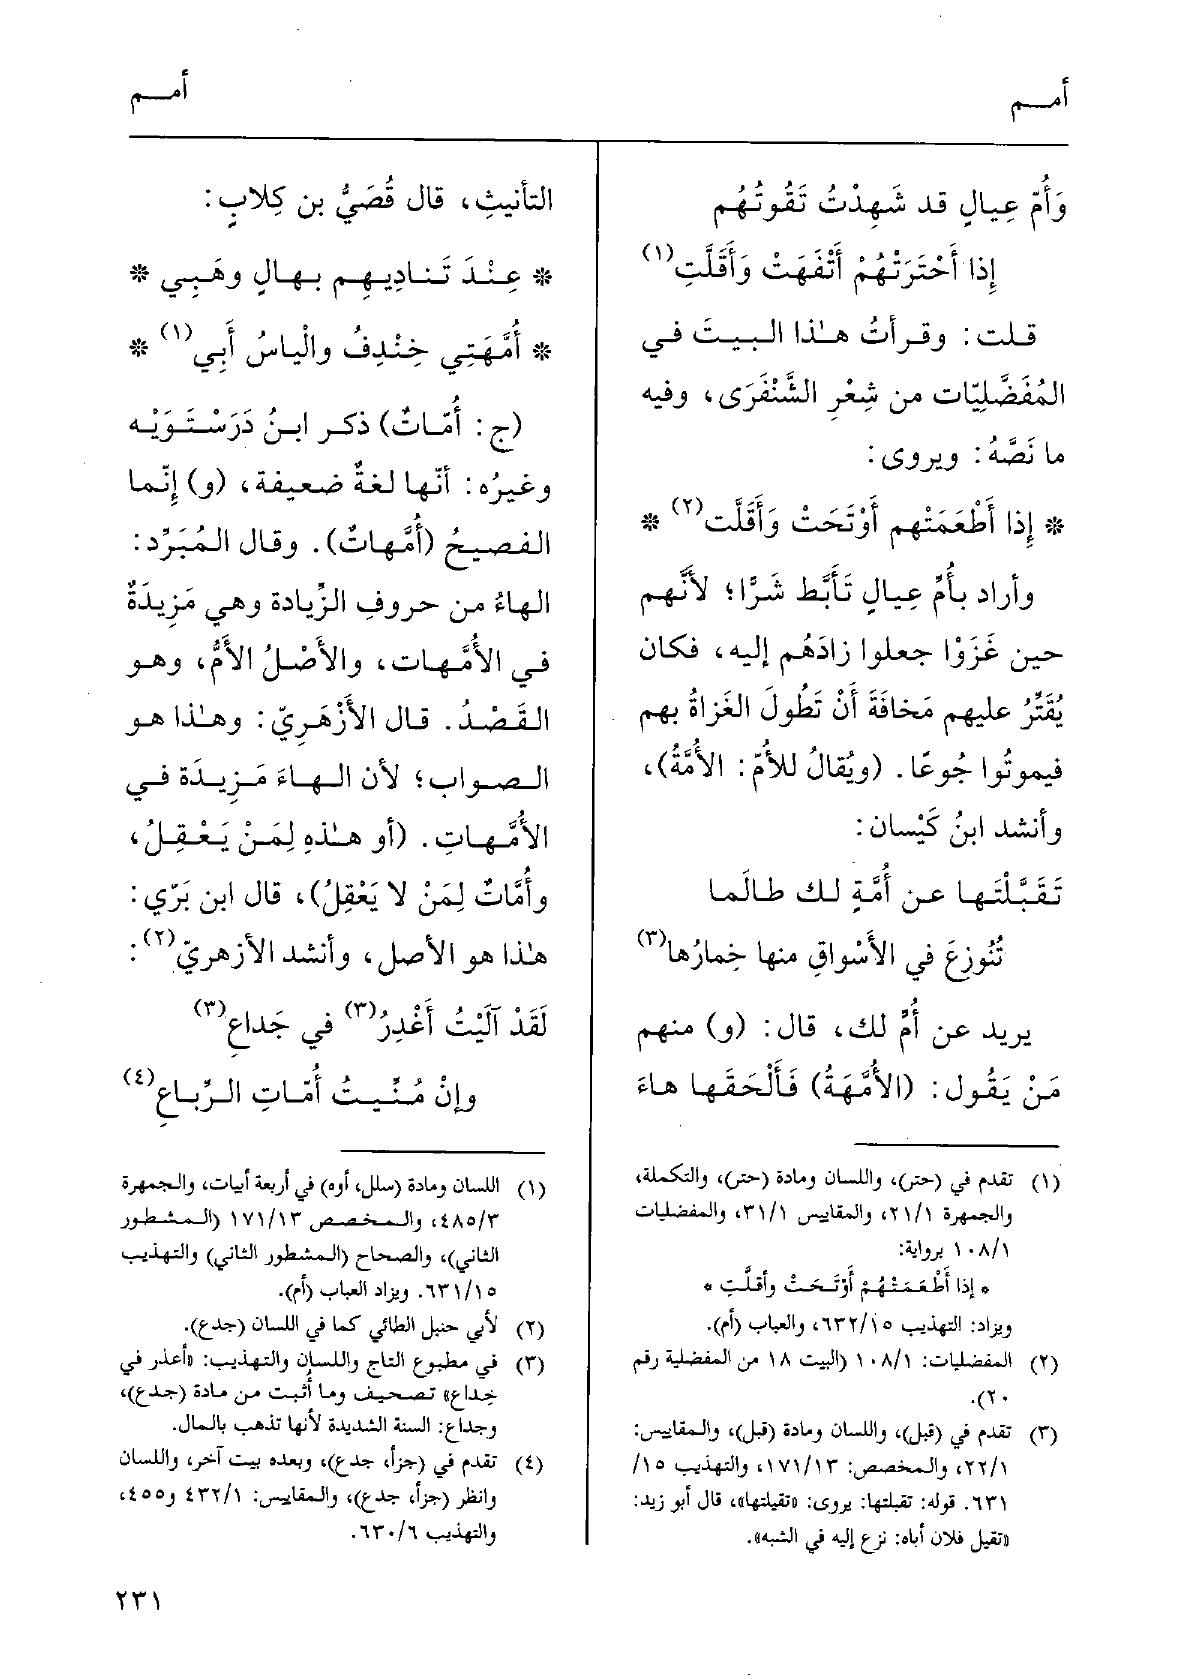 أمـــم
أمـــم
وَأُمّ عِيالٍ قد شَهِدْتُ تَقُوتُهُم
إِذا أَحْتَرَتْهُمْ أَتْفَهَتْ وَأَقَلَّتِ(١)
قلت: وقرأتُ هـٰذا البيتَ في
المُفَضَّلِيّات من شِعْرِ الشَّنْفَرَى، وفيه
ما نَصَّهُ: ويروى:
* إِذا أَطْعَمَتْهم أَوْتَحَتْ وَأَقَلَّت(٢) *
وأراد بأُمِّ عِيالٍ تَأَبَّط شَرًّا؛ لأَنَّهم
حين غَزَوْا جعلوا زادَهُم إليه، فكان
يُقَتِّرُ عليهم مَخافَةَ أَنْ تَطُولَ الغَزاةُ بهم
فيموتُوا جُوعًا. (ويُقالُ للأُمّ: الأُمَّةُ)،
وأنشد ابنُ كَيْسان:
تَقَبَّلْتَها عن أُمَّةٍ لك طالَما
تُنُوزِعَ في الأسْواقِ منها خِمارُها(٣)
يريد عن أُمٍّ لك، قال: (و) منهم
مَنْ يَقُول: (الأُمَّهَةُ) فَأَلْحَقَها هاءَ
التأنيثِ، قال قُصَيُّ بن كِلابٍ:
* عِنْدَ تَنادِيهِم بهالٍ وهَبِي *
* أُمَّهَتِي خِنْدِفُ والْياسُ أَبِي(١) *
(ج: أُمّاتٌ) ذكر ابنُ دَرَسْتَوَيْه
وغيرُه: أنّها لغةٌ ضعيفة، (و) إنّما
الفصيحُ (أُمَّهاتٌ). وقال المُبَرِّد:
الهاءُ من حروفِ الزِّيادة وهي مَزِيدَةٌ
في الأُمَّهات، والأَصْلُ الأَمُّ، وهو
القَصْدُ. قال الأَزْهَرِيّ: وهـٰذا هو
الصواب؛ لأن الهاءَ مَزِيدَة في
الأُمَّهاتِ. (أو هـٰذهِ لِمَنْ يَعْقِلُ،
وأُمَّاتٌ لِمَنْ لا يَعْقِلُ)، قال ابن بَرّي:
هـٰذا هو الأصل، وأنشد الأزهريّ(٢):
لَقَدْ آلَيْتُ أَغْدِرُ(٣) في جَداعِ(٣)
وإنْ مُنِّيتُ أُمّاتِ الرِّباعِ(٤)
(١) تقدم في (حتر)، واللسان ومادة (حتر)، والتكملة،
والجمهرة ٢١/١، والمقاييس ٣١/١، والمفضليات
١٠٨/١ برواية:
* إذا أَطْعَمَتْهُمْ أَوْتَحَتْ وأقلَّتِ *
ويزاد: التهذيب ٦٣٢/١٥، والعباب (أم).
(٢) المفضليات: ١٠٨/١ (البيت ١٨ من المفضلية رقم
٢٠).
(٣) تقدم في (قبل)، واللسان ومادة (قبل)، والمقاييس:
٢٢/١، والمخصص: ١٧١/١٣، والتهذيب ١٥/
٦٣١. قوله: تقبلتها: يروى: «تقيلتها»، قال أبو زيد:
«تقيل فلان أباه: نزع إليه في الشبه».
(١) اللسان ومادة (سلل، أوه) في أربعة أبيات، والجمهرة
٤٨٥/٣، والمخصص ١٧١/١٣ (المشطور
الثاني)، والصحاح (المشطور الثاني) والتهذيب
٦٣١/١٥. ويزاد العباب (أم).
(٢) لأبي حنبل الطائي كما في اللسان (جدع).
(٣) في مطبوع التاج واللسان والتهذيب: «أعذر في
خداع» تصحيف وما أثبت من مادة (جدع)،
وجداع: السنة الشديدة لأنها تذهب بالمال.
(٤) تقدم في (جزأ، جدع)، وبعده بيت آخر، واللسان
وانظر (جزأ، جدع)، والمقاييس: ٤٣٢/١ و٤٥٥،
والتهذيب ٦٣٠/٦.
٢٣١